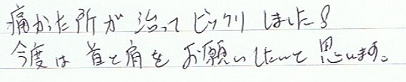 痛かった所が治ってビックリしました!
今度は首と肩をお願いしたいと思います。